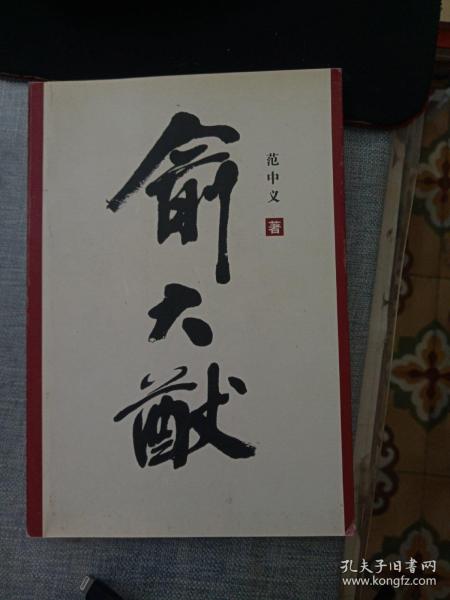 俞大猷
范中义
著
孔夫子旧书网
www.kongfz.com